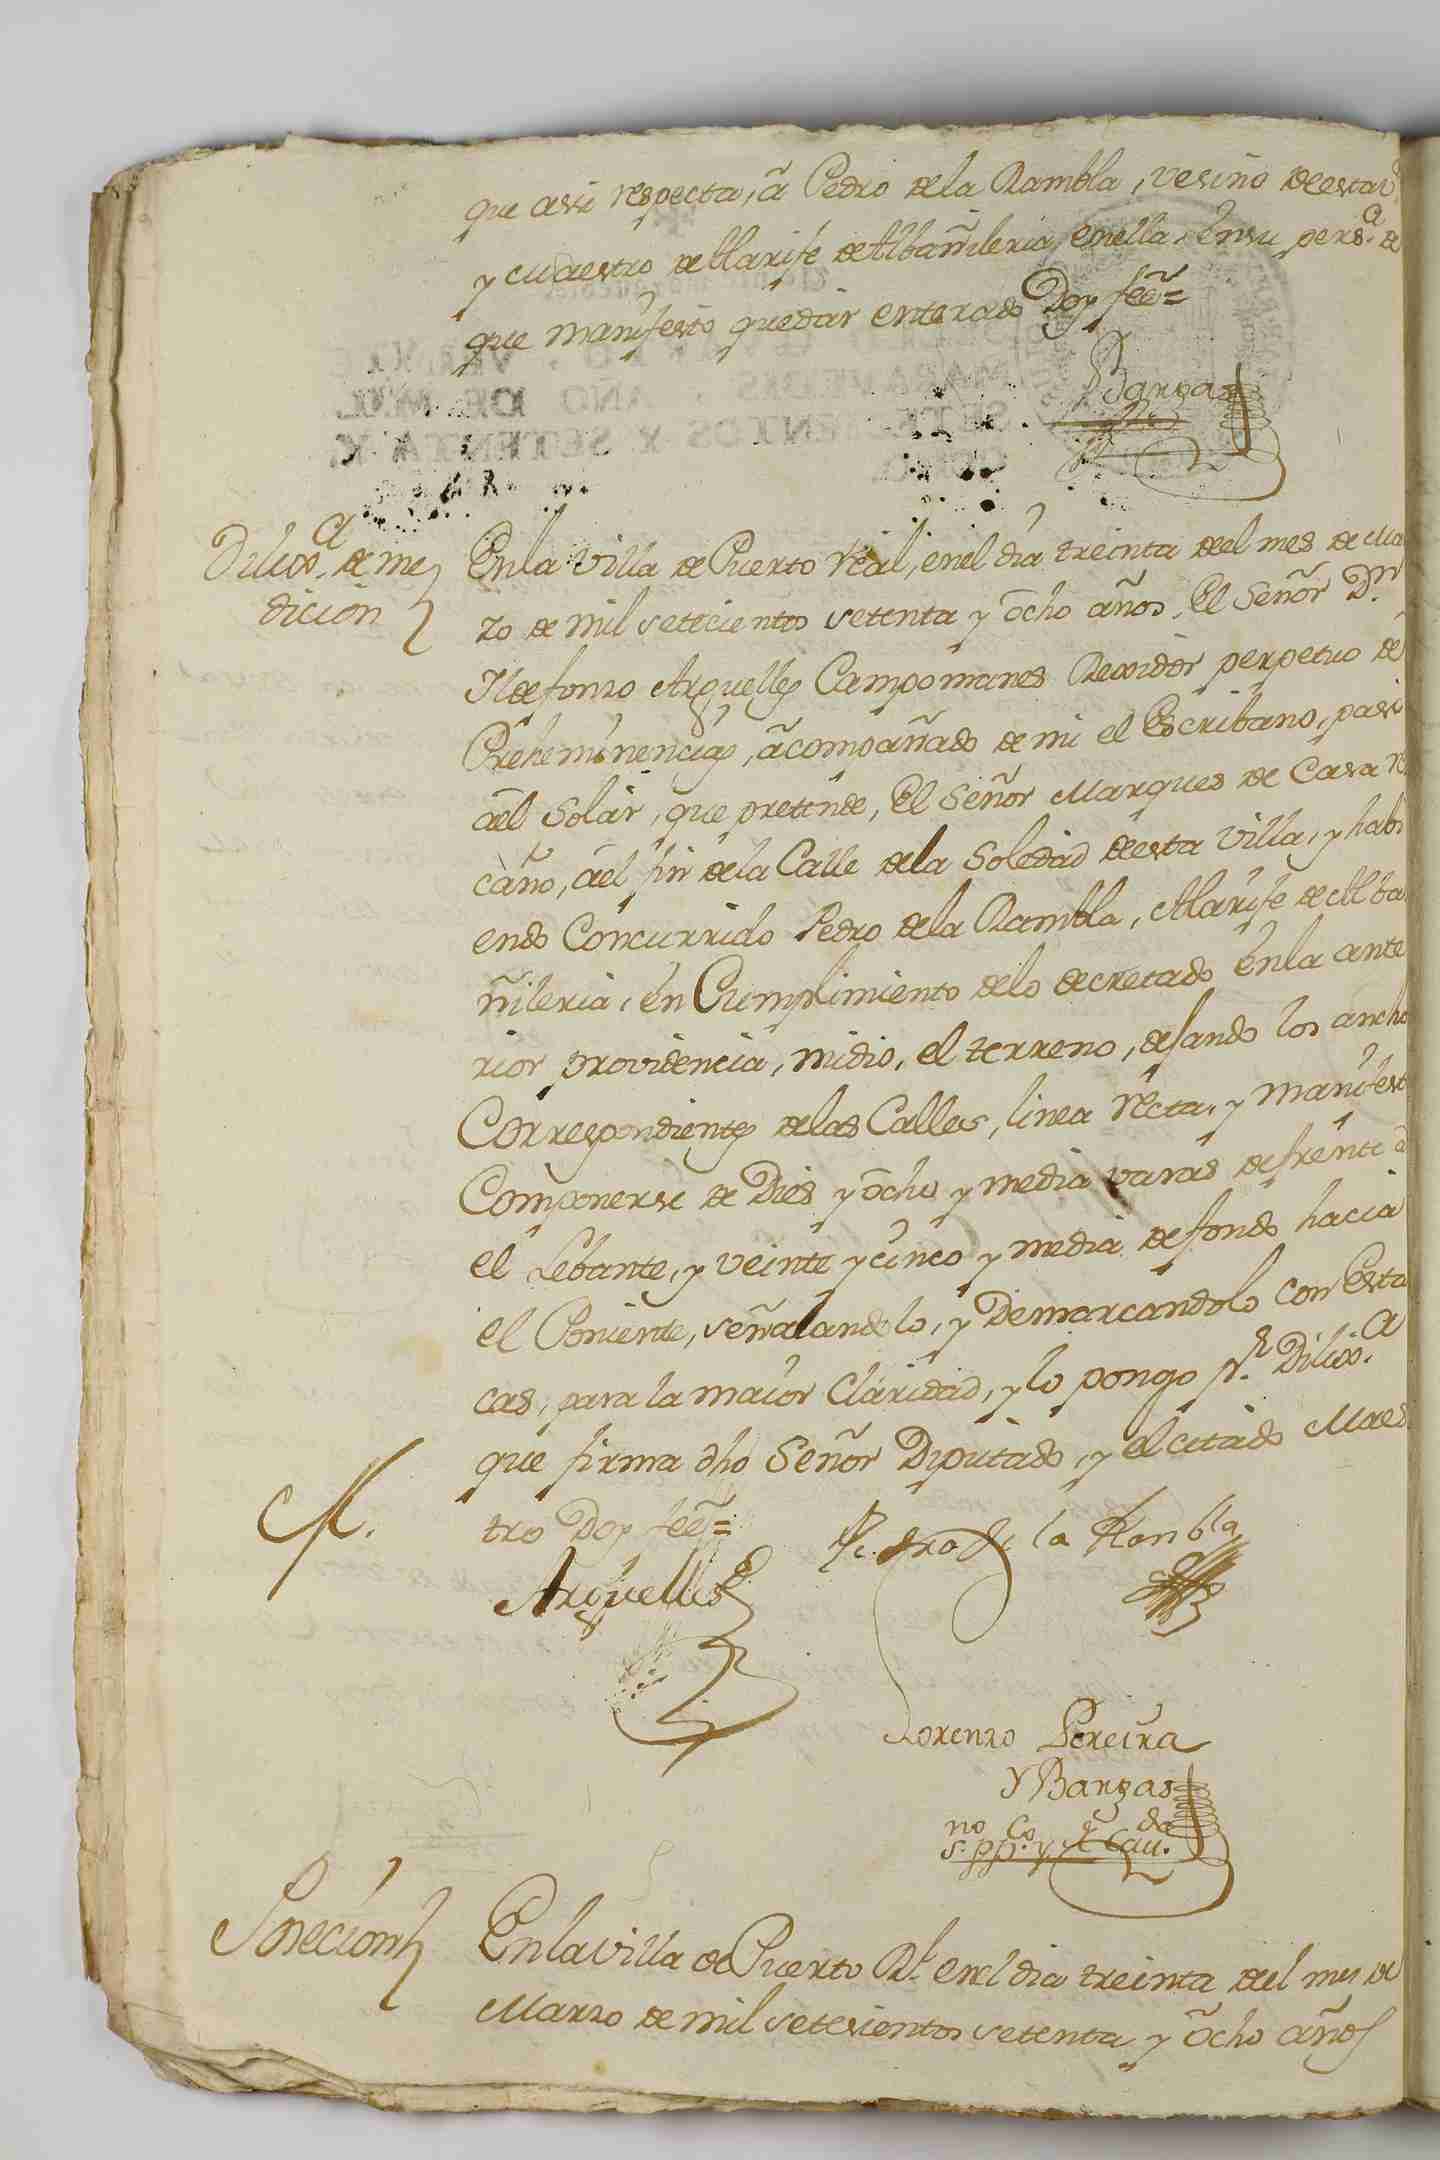 que assi respecta, a Pedro de la Rambla, vesino de esta v.
y Maestro de Alarife de Albañileria en ella, en su pers.ª de
que manifesto quedar enterado Doy feé=
Bargas
Dilix.ª de me
dicion
En la villa de Puerto Real, en el dia treinta del mes de Ma
rzo de mil setecientos setenta y ocho años, El Señor D.n
Ildefonso Arguelles Campomanes Rexidor perpetuo de
Preheminencias, acompañado de mi el Escribano, pasó
ael Solar, que pretende, El Señor Marques de Casa Re
caño, ael fin de la Calle de la Soledad de esta Villa, y habi
endo Concurrido Pedro de la Rambla, Alarife de Alba
ñileria, en Cumplimiento de lo decretado en la ante
rior providencia, midio, el terreno, dejando los ancho
Correspondientes de las Calles, linea recta, y manifesto
Componerse de Dies y ocho y media varas de frente a
el Lebante, y veinte y cinco y media de fondo hacia
el Poniente, señalandolo, y Demarcandolo con Esta
cas, para la maior Claridad, y lo pongo p.r Dilix.ª
que firma dho Señor Diputado, y el citado Maes
tro Doy feé=
Pedro de la Ranbla
Arguelles
Lorenzo Pereira
Y Bargas
no Co do
s. pp. y Cav.
En la villa de Puerto Rl. en el dia treinta del mes de
Marzo de mil setesientos setenta y ocho años